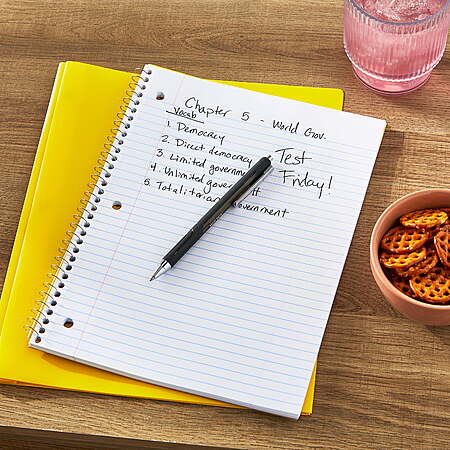 Chapter 5 - World Gov.
Vocab
1. Democracy
2. Direct democracy
3. Limited governm
4. Unlimited govern
5. Totalitarian government
Test
Friday!